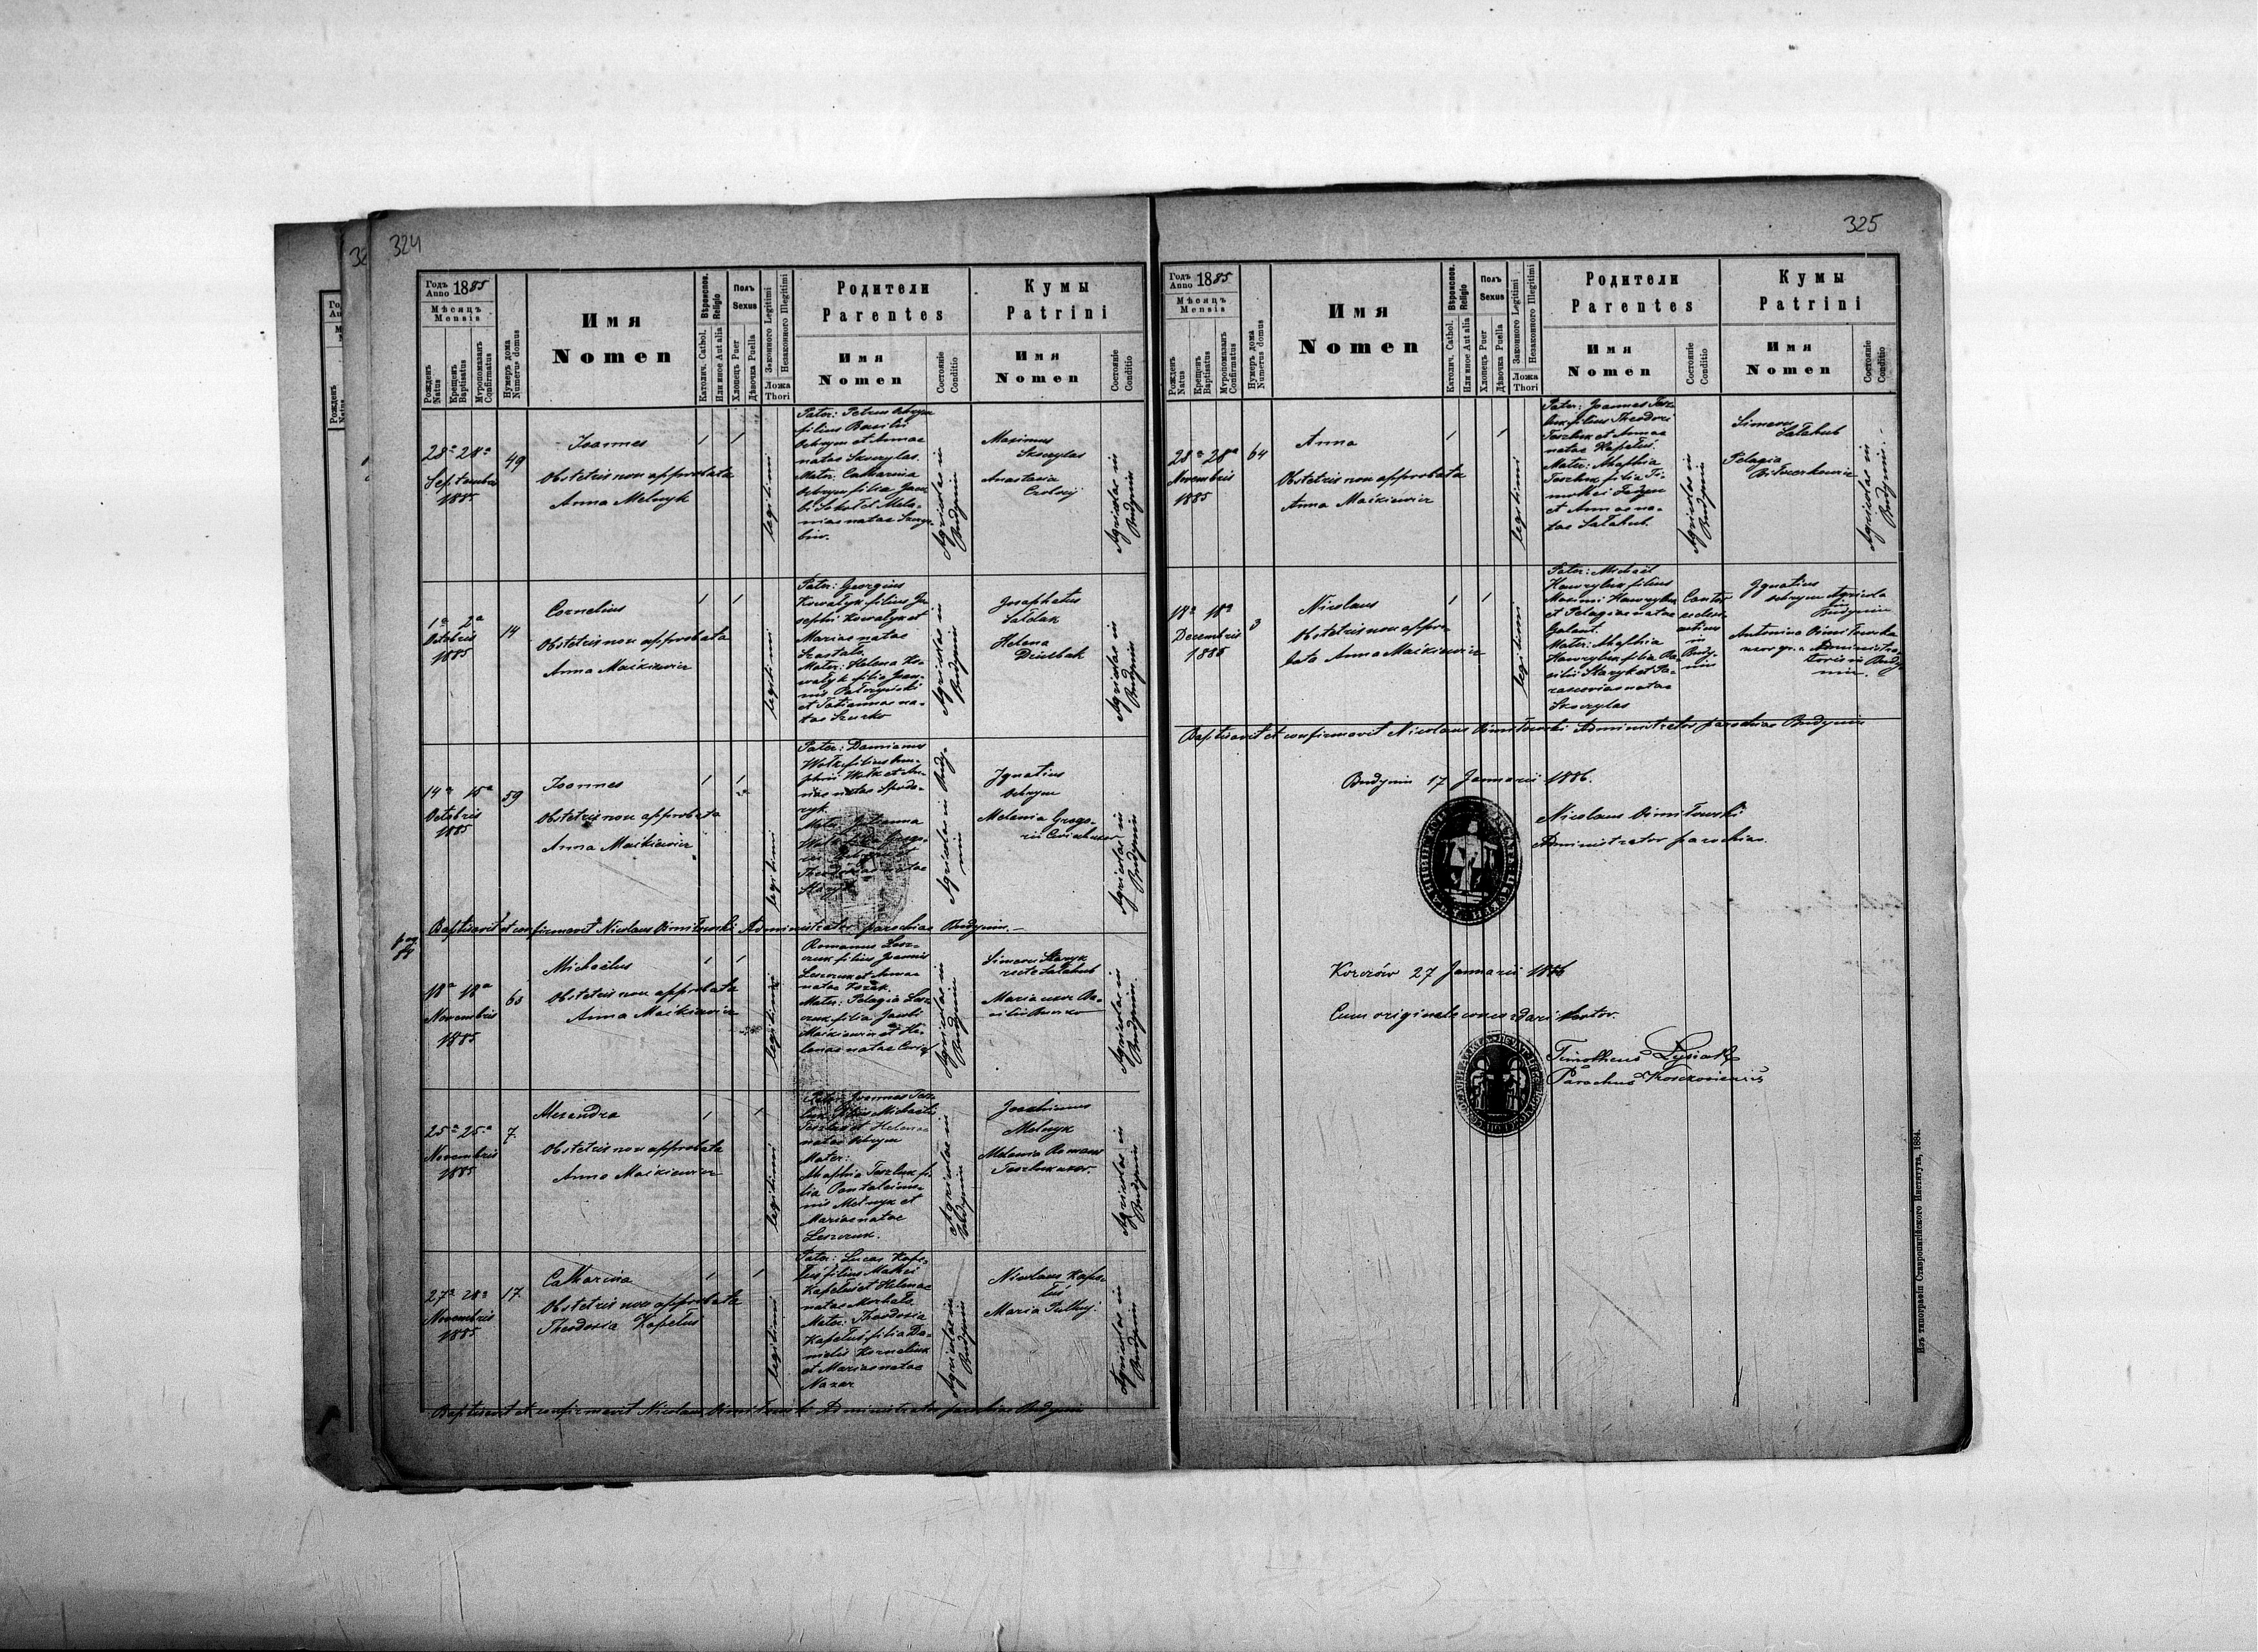 324
Годъ Anno 1885
Мѣсяцъ
Mensis
Рожденъ
Natus
Крещенъ
Baptisatus
Мѵропомазанъ
Confirmatus
Нумеръ дома
Numerus domus
Имя
Nomen
Вѣроиспов.
Religio
Католич. Cathol.
Или иное Aut alia
Полъ
Sexus
Хлопецъ Puer
Дѣвочка Puella
Законного Legitimi
Незаконного Illegitimi
Ложа
Thori
Родители
Parentes
Имя
Nomen
Состояніе
Conditio
Кумы
Patrini
Имя
Nomen
Состояніе
Conditio
28a 28a
Septembris
1885
49
Joannes
Obstetrix non approbata
Anna Melnyk
1 1
legitimi
Pater: Petrus Ochrym
filius Basilii
Ochrym et Annae
natae Skoczylas.
Mater: Catharina
Ochrym filia Jaco
bi Sokol et Mela-
niae natae
Agricolae in
Budynin
Maximus
Skoczylas
Anastasia
Agricolae in
Budynin
1a 2a
Octobris
1885
14
Cornelius
Obstetrix non approbata
Anna Maikiewicz
1 1
legitimi
Pater: Georgius
Kowalyk filius Jo
sephi Kowalyk et
Mariae natae
Mater: Helena Ko-
walyk filia Joan-
nis
et Tatiannae na-
tae Szurko
Agricolae in
Budynin
Josaphatus
Saldak
Helena
Agricolae in
Budynin
14a 15a
Octobris
1885
59
Joannes
Obstetrix non approbata
Anna Maikiewicz
1 1
legitimi
Pater: Damianus
Wolk filius Onu-
phrii Wolk et An-
nae natae
Mater:
Agricolae in Budy-
nin
Ignatius
Ochrym
Melania Grego-
rii
Agricolae in
Budynin
Baptisavit et confirmavit Nicolaus Dimitowski Administrator parochiae Budynin.
18a 18a
Novembris
1885
65
Michaelus
Obstetrix non approbata
Anna Maikiewicz
1 1
legitimi
Romanus Lesz-
czuk filius Joannis
Leszczuk et Annae
natae Kozak.
Mater: Pelagia Lesz-
czuk filia Jacobi
Maikiewicz et He-
lenae natae
Agricolae in
Budynin
Simeon Staryk
recte Salahub
Maria uxor Ba-
silii
Agricolae in
Budynin.
25a 25a
Novembris
1885
7.
Alexandra
Obstetrix non approbata
Anna Maikiewicz
1 1
legitimi
Pater: Joannes Tesz-
luk filius Michaelis
Teszluk et Helenae
natae Ochrym
Mater:
Maphia Teszluk fi-
lia Pantaleimo-
nis Melnyk et
Mariae natae
Leszczuk.
Agricolae in
Budynin
Joachimus
Melnyk
Melania Romani
Teszluk uxor.
Agricolae in
Budynin
27a 28a
Novembris
1885
17
Catharina
Obstetrix non approbata
Theodosia Kapeluś
1 1
legitimi
Pater: Lucas Kape-
luś filius Mathei
Kapeluś et Helenae
natae
Mater: Theodosia
Kapeluś filia Da-
nielis Korneliuk
et Mariae natae
Nazar
Agricolae in
Budynin
Nicolaus Kape-
luś
Maria
Agricolae in
Budynin
Baptisavit et confirmavit Nicolaus Dimitowski Administrator parochiae Budynin
325
Годъ Anno 1885
Мѣсяцъ
Mensis
Рожденъ
Natus
Крещенъ
Baptisatus
Мѵропомазанъ
Confirmatus
Нумеръ дома
Numerus domus
Имя
Nomen
Вѣроиспов.
Religio
Католич. Cathol.
Или иное Aut alia
Полъ
Sexus
Хлопецъ Puer
Дѣвочка Puella
Законного Legitimi
Незаконного Illegitimi
Ложа
Thori
Родители
Parentes
Имя
Nomen
Состояніе
Conditio
Кумы
Patrini
Имя
Nomen
Состояніе
Conditio
28a 28a
Novembris
1885
64
Anna
Obstetrix non approbata
Anna Maikiewicz
1 1
legitimi
Pater: Joannes Tesz-
luk filius Theodori
Teszluk et Annae
natae Kapeluś.
Mater: Maphia
Teszluk filia Ti-
mothei
et Annae na-
tae Salahub
Agricolae in
Budynin
Simeon
Salahub
Pelagia
Agricolae in
Budynin.
18a 18a
Decembris
1885
3
Nicolaus
Obstetrix non appro-
bata Anna Maikiewicz
1 1
legitimi
Pater: Michaël
Hawryluk filius
Maximi Hawryluk
et Pelagiae natae
Galant.
Mater: Maphia
Hawryluk filia Ba-
silii Staryk et Pa-
rasceviae natae
Skoczylas
Cantor
eccle
siasticus
in
Budy-
nin
Ignatius
Ochrym Agricola
in
Budynin
Antonina Dimitowska
uxor gr. c. Administra-
toris in Budy-
nin.
Baptisavit et confirmavit Nicolaus Dimitowski Administrator parochiae Budynin
Budynin 17 Januarii 1886.
Nicolaus Dimitowski
Administrator parochiae.
Korczów 27 Januarii 1886
Cum originale concordari testor.
Timotheus Lysiak
Parochus Korczoviensis
Изъ типографіи Ставропигійского Института, 1884.